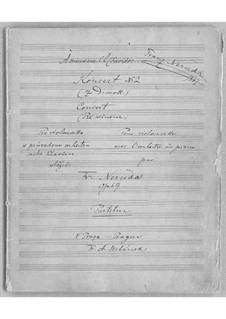 À monsieur
Franz Neruda
Koncert No 2
(D-moll)
Concert
(Ré mineur)
Pro violoncello Pour violoncelle
s průvodem orchestru avec l'orchestre ou piano
nebo klavíru par
složil
Fr. Neruda
Op. 59
Partitur
V Praze - Prague